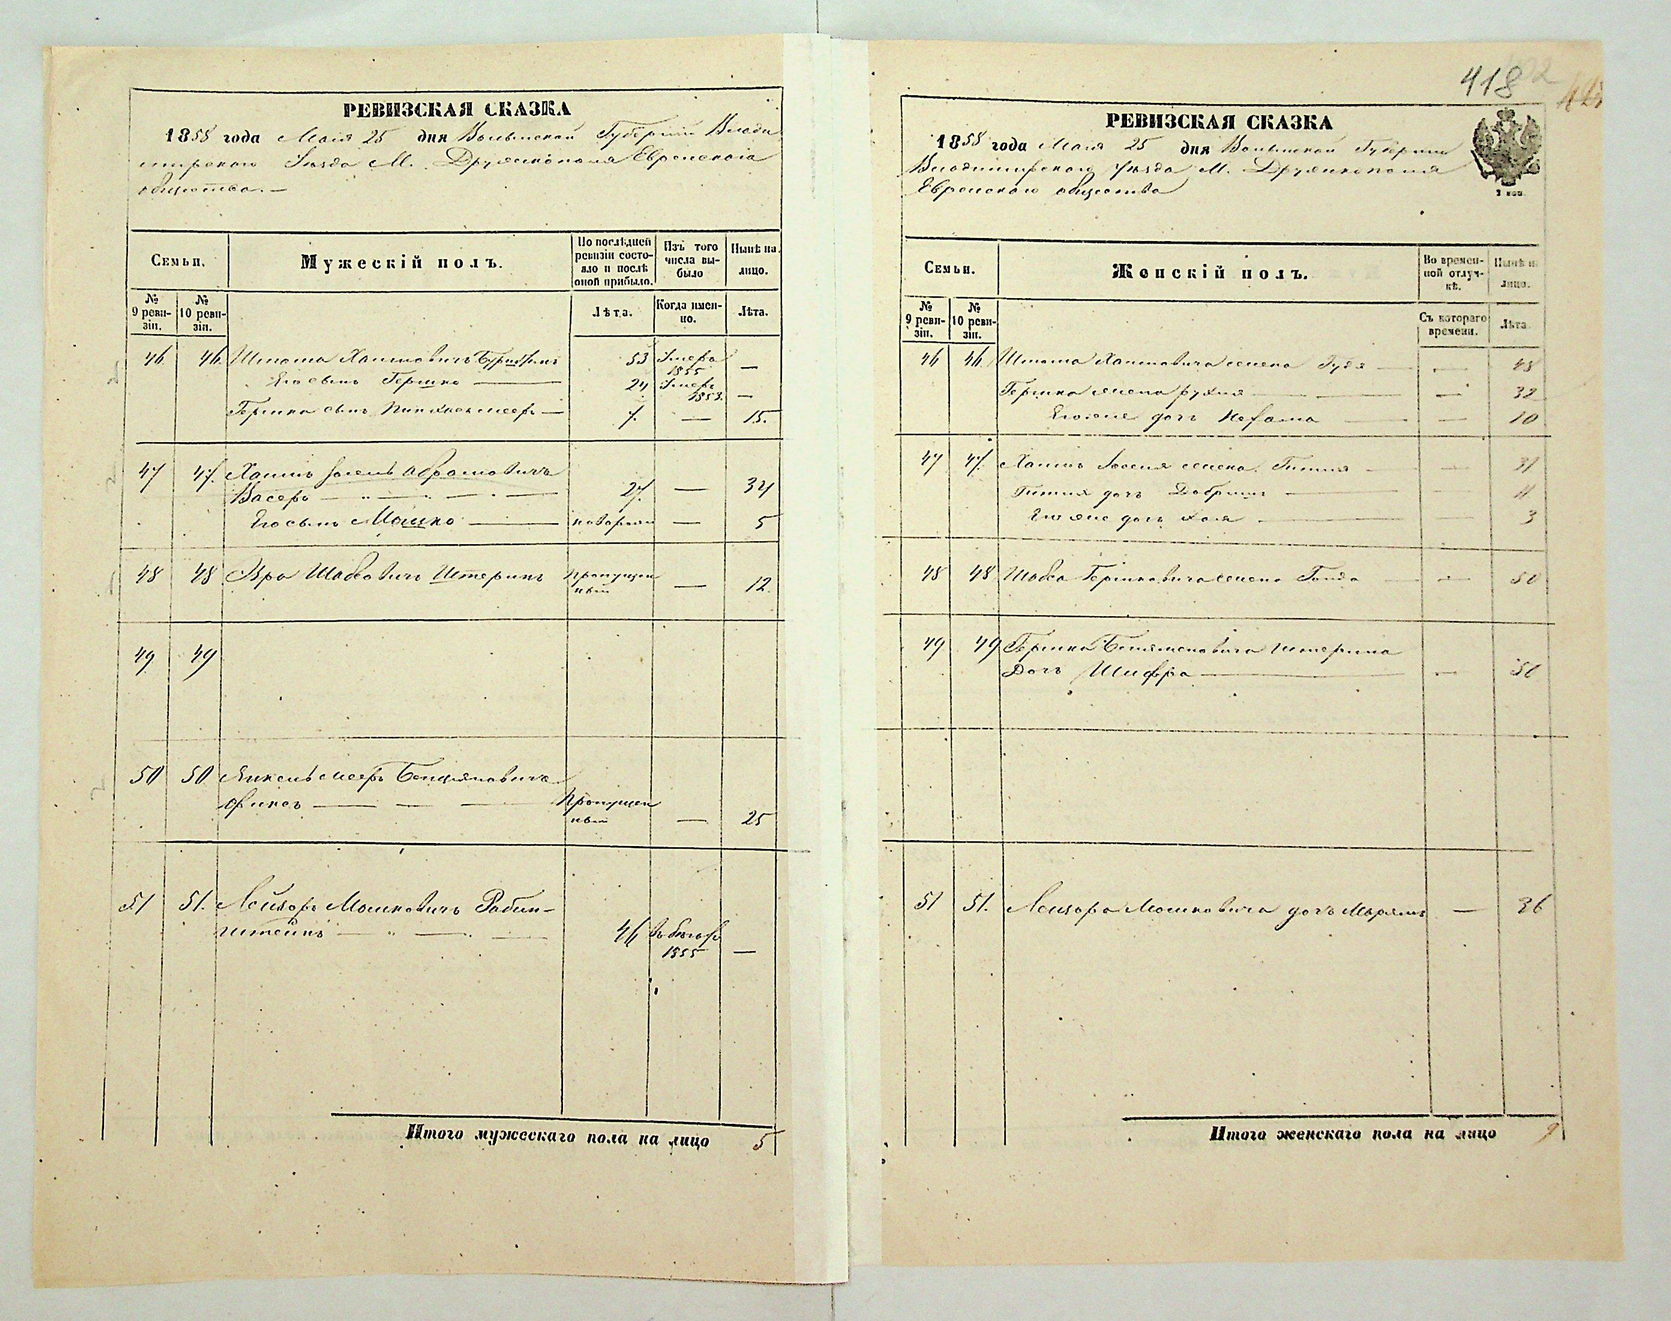 418
РЕВИЗСКАЯ СКАЗКА
1858 года Мая 25 дня Волынской Губернии Влади
мирскаго Уезда М. Дружкополя Еврейскаго
общества.
Семьи.
Мужескій полъ.
По послѣдней ревизіи состояло и послѣ оной прибыло.
Изъ того числа выбыло
Нынѣ на лицо.
№ 9 ревизіи.
№ 10 ревизіи.
Лѣта.
Когда именно.
Лѣта.
46 46 Шлома Хаимовичъ 53 Умеръ 1855 —
Его сынъ Гершко 24 Умеръ 1853 —
Гершка сынъ Пинхасъ Мееръ — 7. — 15.
47 47. Хаимъ Іосель Абрамовичъ
Васеръ 27. — 34
Его сынъ Мошко — — 5
48 48 Шабсовичъ Штернъ Пропущен
ный — 12.
49 49
50 50 Янкель Мееръ
Фиксъ Пропущен
ный — 25
51 51. Лейзоръ Мошковичъ Рабин-
штейнъ 46 1855 —
Итого мужескаго пола на лицо 5
РЕВИЗСКАЯ СКАЗКА
1858 года Мая 25 дня Волынской Губернии
Владимирскаго Уезда М. Дружкополя
Еврейскаго общества
Семьи.
Женскій полъ.
Во временной отлучкѣ.
Нынѣ на лицо.
№ 9 ревизіи.
№ 10 ревизіи.
Съ котораго времени.
Лѣта.
46 46 Шлома Хаимовича жена — 48
Гершка жена Рухля — 32
Его же дочь — 10
47 47. Хаимъ Іоселя жена Гитля — 31
Гитля дочь Добришъ — 11
Его же дочь Хая — 3
48 48 Шабса Гершковича жена Голда — 50
49 49 Гершка Штерна
Дочь Шифра — 50
51 51. Лейзора Мошковича дочь Марьямъ — 26
Итого женскаго пола на лицо 9